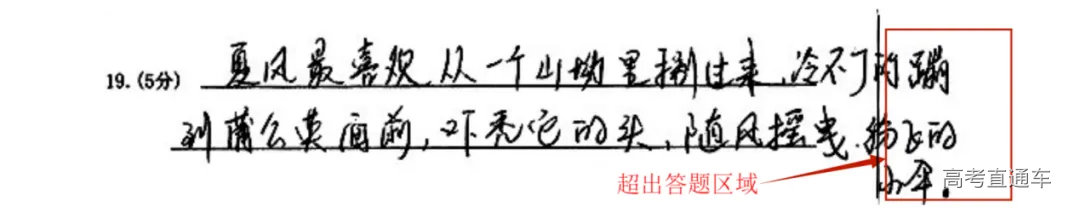 19.(5分) 夏风最喜欢从一个山坳里捌过来,冷不丁的蹦
到蒲公英面前,吓秃它的头,随风摇曳.纷飞的
小伞。
超出答题区域
高考直通车